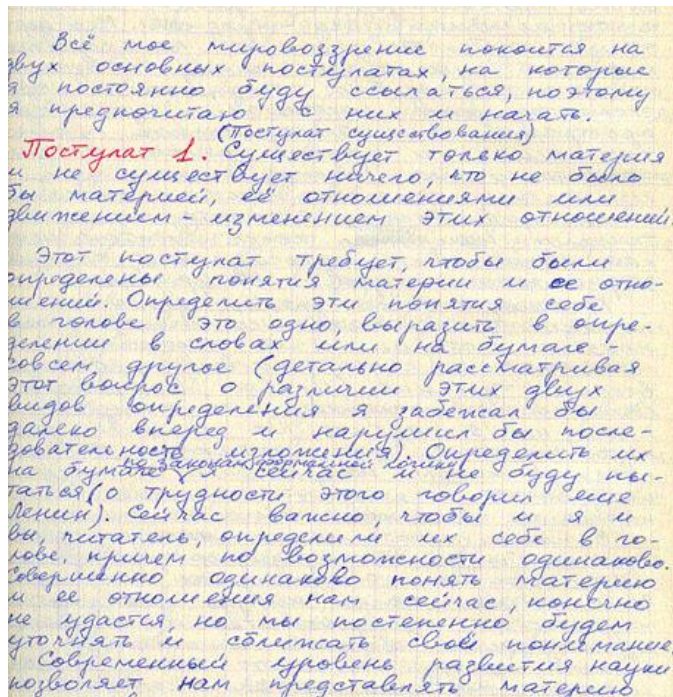 Всё мое мировоззрение покоится на
двух основных постулатах, на которые
я постоянно буду ссылаться, поэтому
я предпочитаю с них и начать.
(Постулат существования)
Постулат 1. Существует только материя
и не существует ничего, что не было
бы материей, её отношениями или
движением - изменением этих отношений.
Этот постулат требует, чтобы были
определены понятия материи и ее отно-
шений. Определить эти понятия себе
в голове это одно, выразить в опре-
делении в словах или на бумаге
совсем другое (детально рассматривая
этот вопрос о различии этих двух
видов определения я забежал бы
далеко вперед и нарушил бы после-
довательность изложения). Определить их
по законам формальной логики
на бумаге я сейчас и не буду пы-
таться (о трудности этого говорил еще
Ленин). Сейчас важно, чтобы и я и
вы, читатель, определили их себе в го-
лове, причем по возможности одинаково.
Совершенно одинаково понять материю
и ее отношения нам сейчас, конечно
не удастся, но мы постепенно будем
уточнять и сближать своё понимание.
Современный уровень развития науки
позволяет нам представлять материю